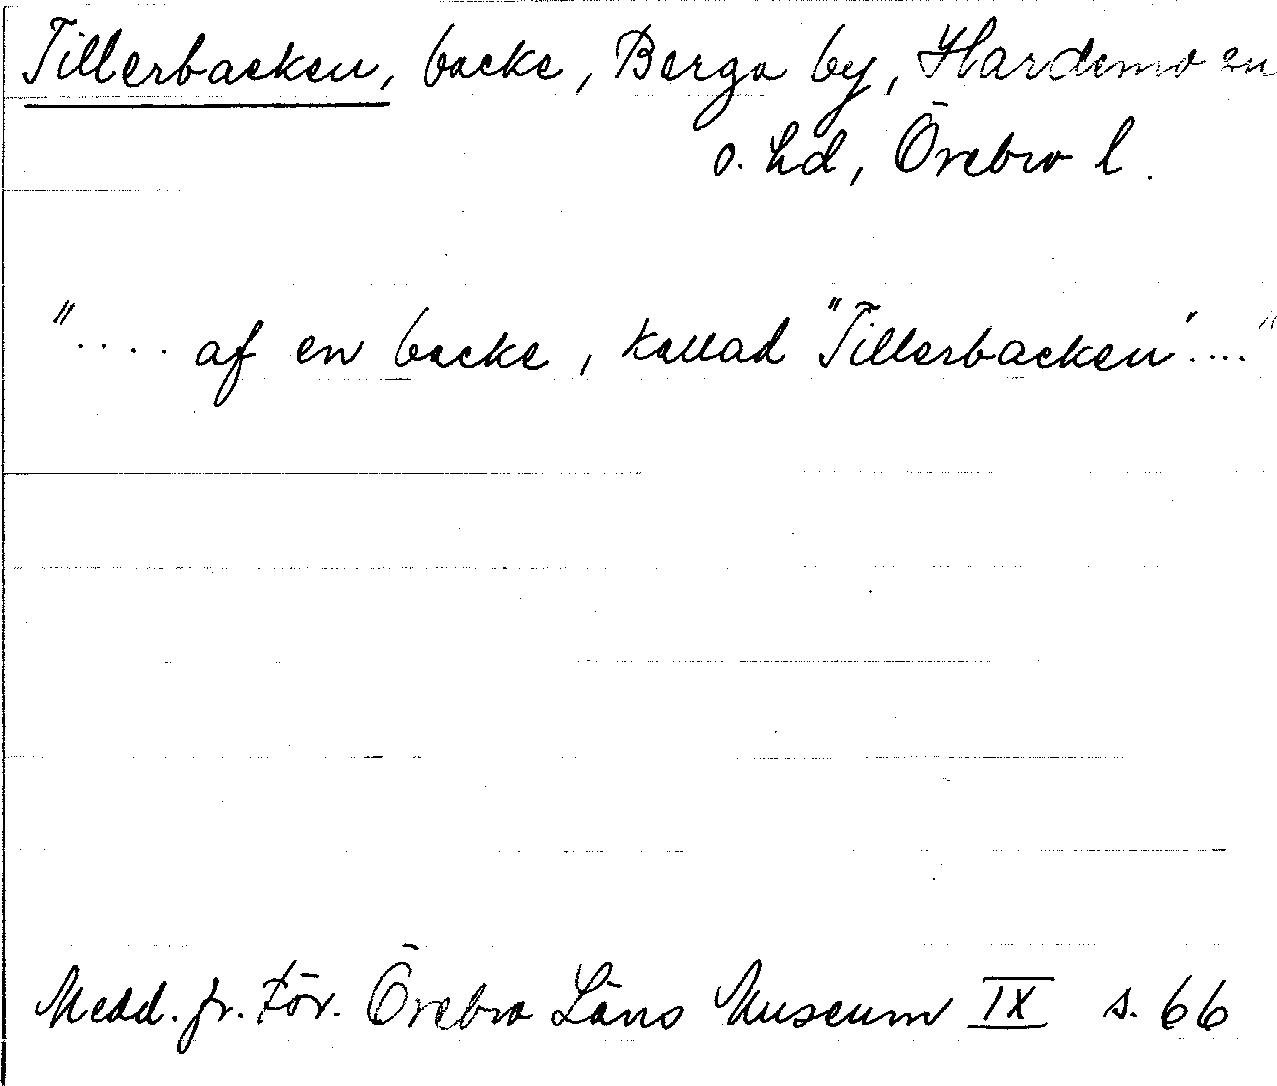 Tillerbacken, backe, Berga by, Hardemo sn
o. hd, Örebro l.
".... af en backe, kallad "Tillerbacken"...."
Medd. fr. För. Örebro Läns Museum IX s. 66